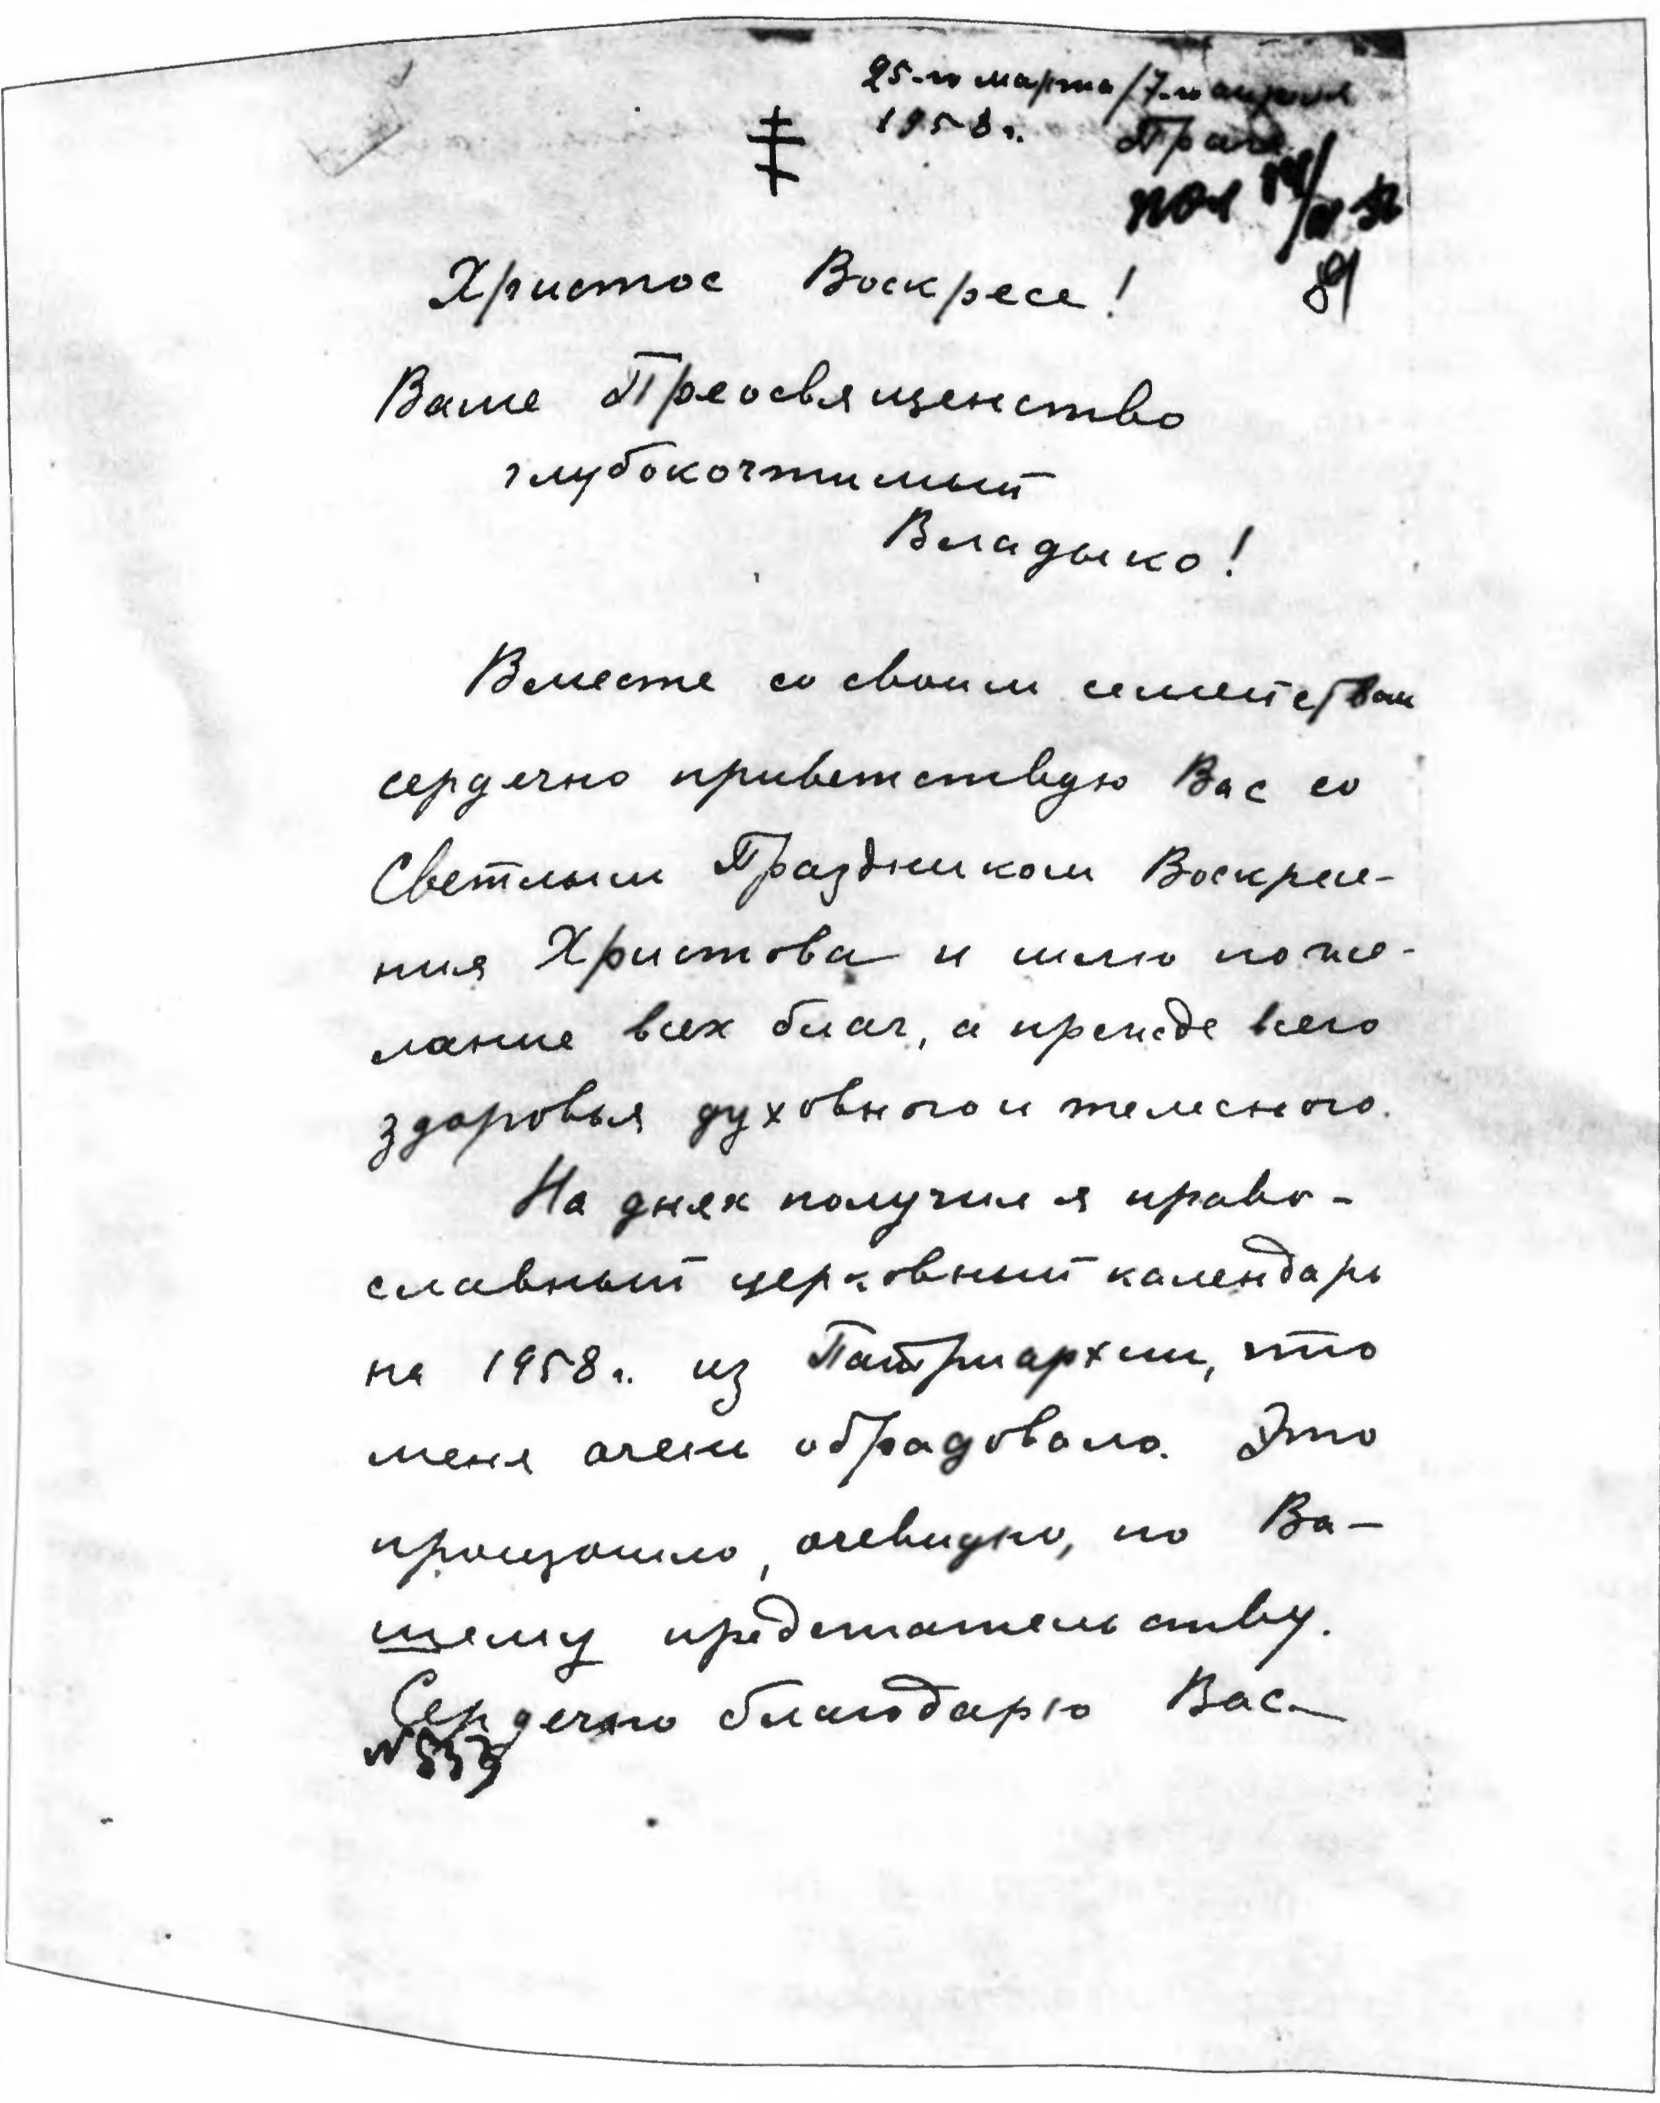 25-го марта/7-го апреля
1958 г. Прага
Христос Воскресе!
Ваше Преосвященство
глубокочтимый
Владыко!
Вместе со своим семейством
сердечно приветствую Вас со
Светлым Праздником Воскресе-
ния Христова и шлю поже-
лание всех благ, а прежде всего
здоровья духовного и телесного.
На днях получил я право-
славный церковный календарь
на 1958 г. из Патриархии, что
меня очень обрадовало. Это
произошло, очевидно, по Ва-
шему предстательству.
Сердечно благодарю Вас